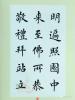 明遍照國中
來至佛所恭
敬禮拜站立